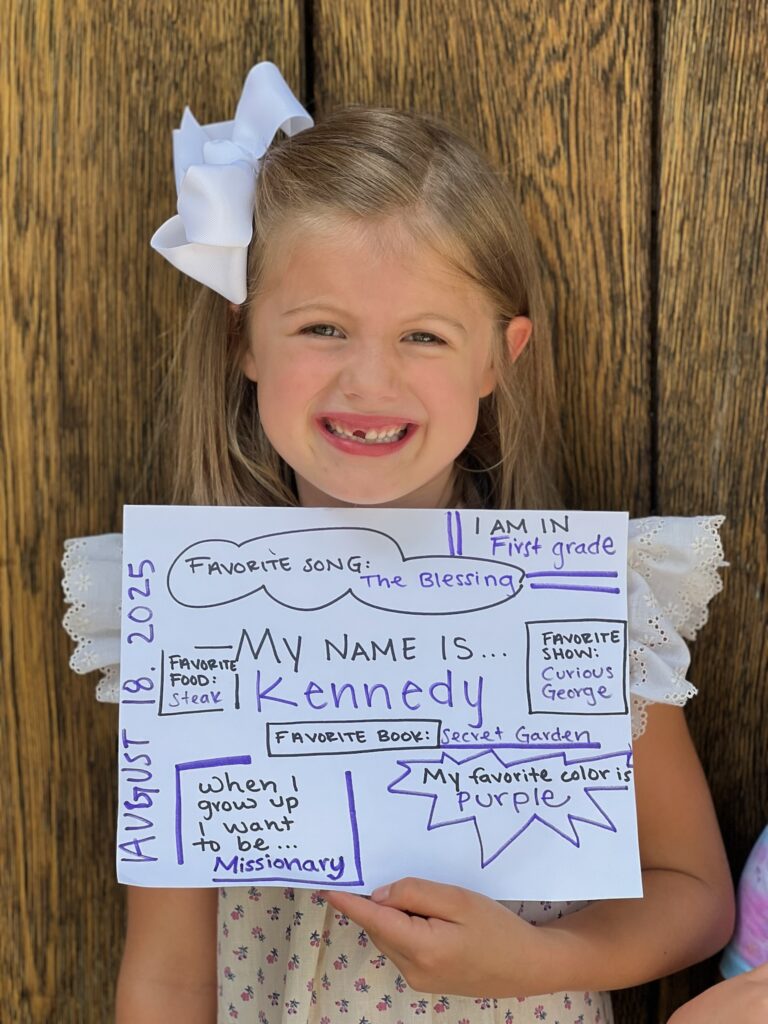 I AM IN
First grade
FAVORITE SONG:
The Blessing
AUGUST 18. 2025
MY NAME IS...
Kennedy
FAVORITE
FOOD:
Steak
FAVORITE
SHOW:
Curious
George
FAVORITE BOOK: Secret Garden
when I
grow up
I want
to be...
Missionary
My favorite color is
purple